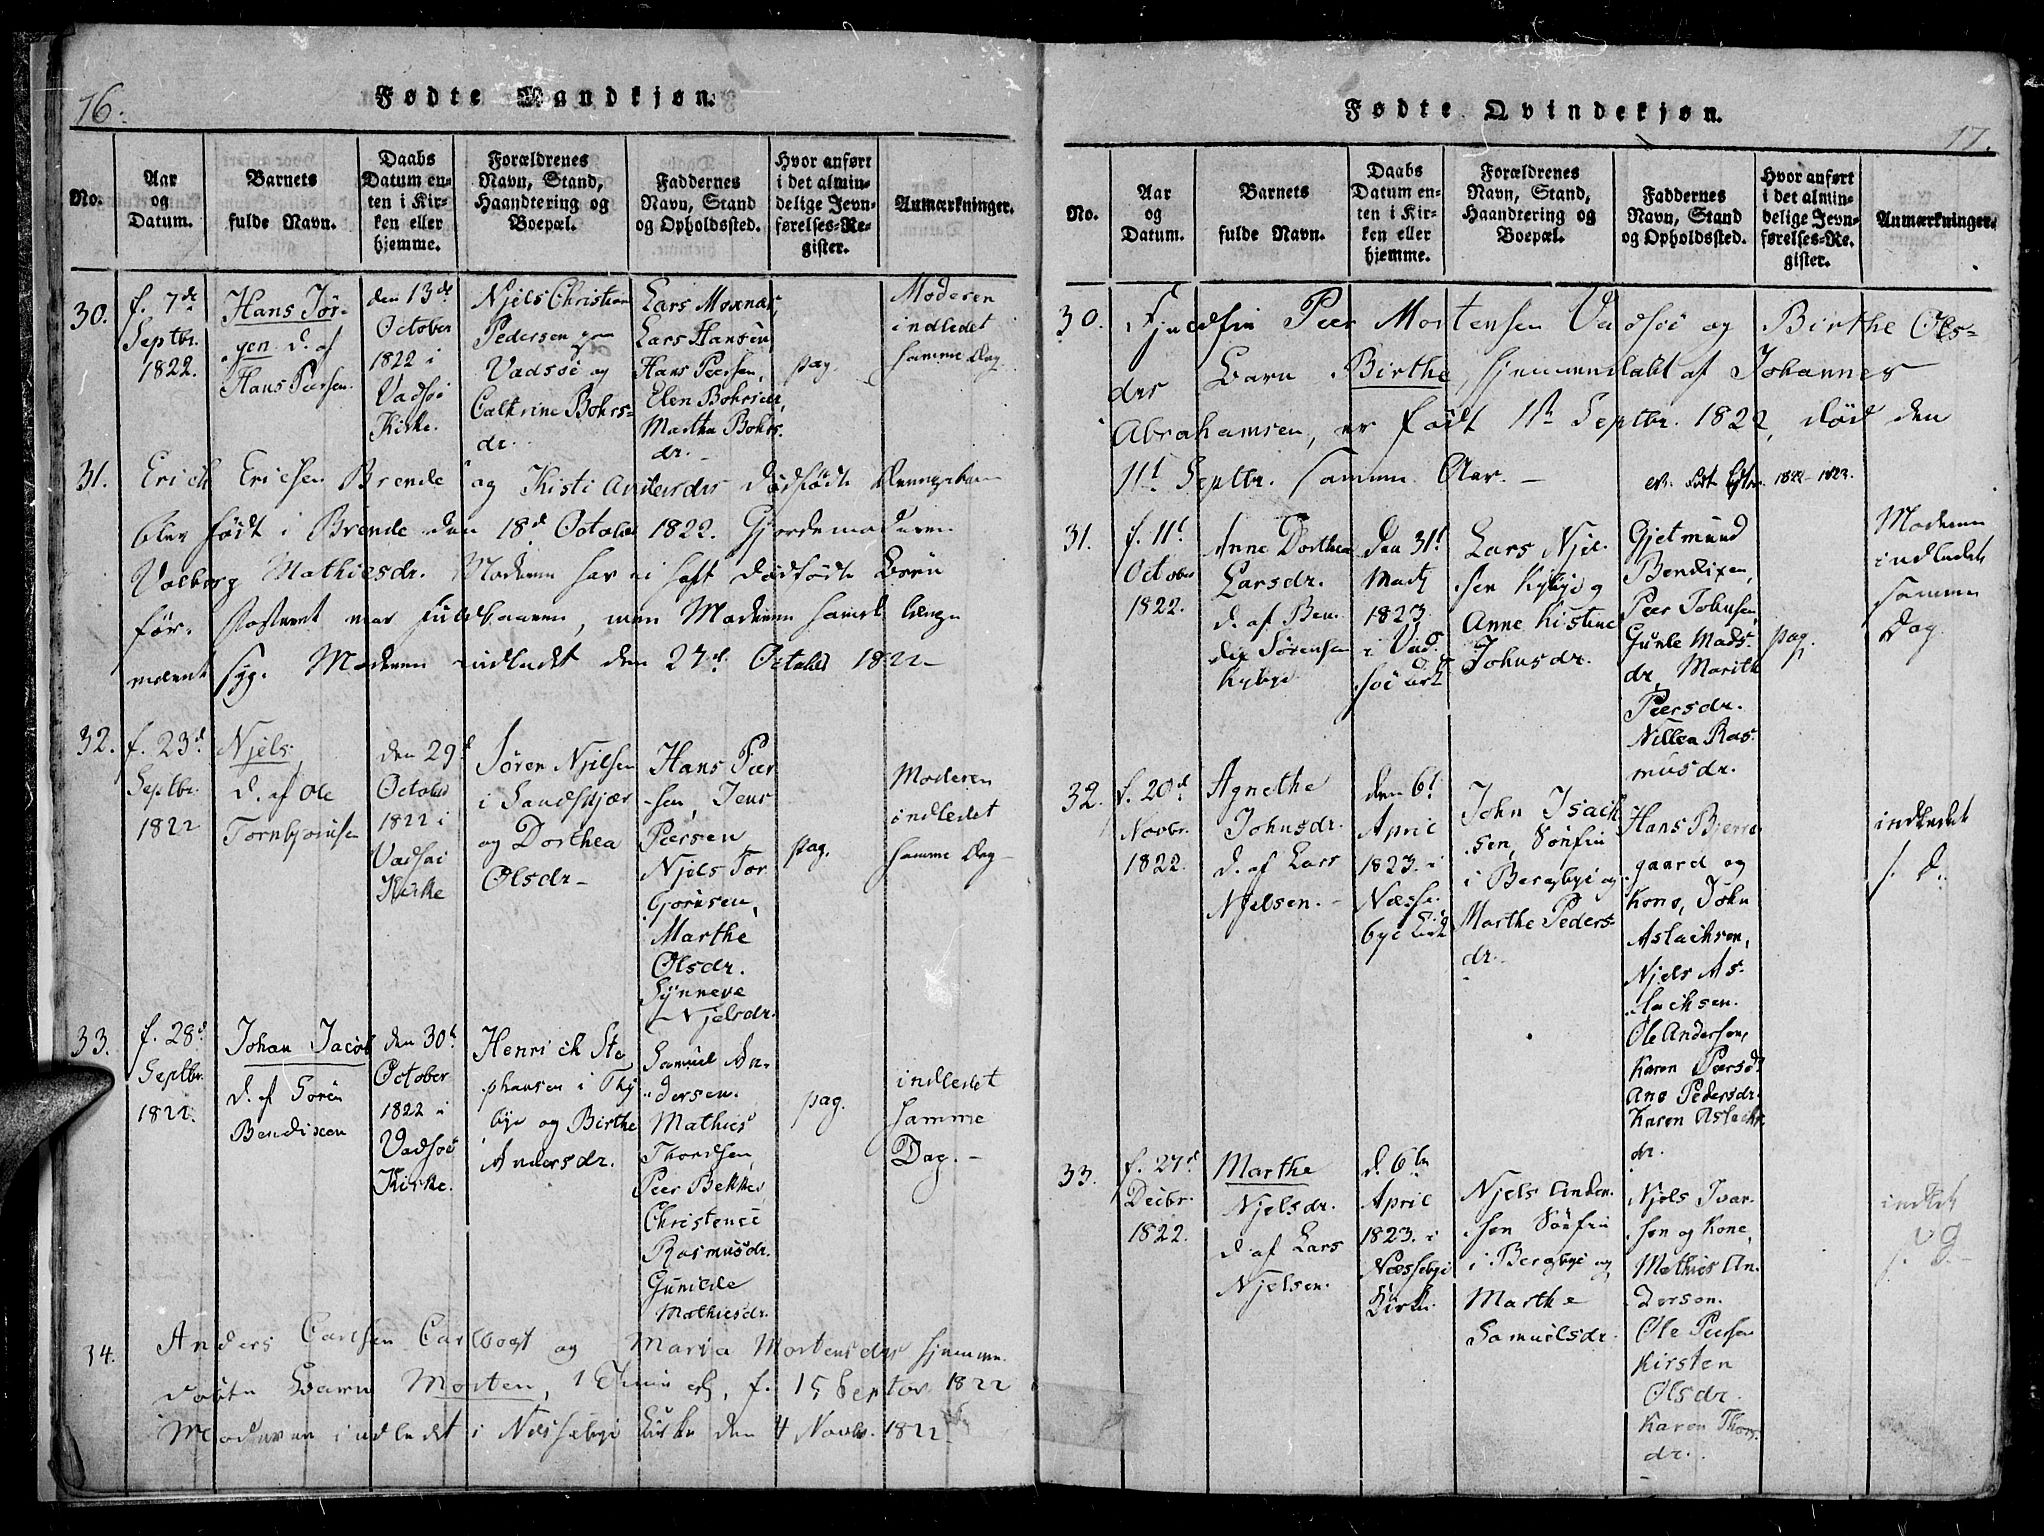 16.
Fødte Mandkjøn.
No.
Aar
og
Datum.
Barnets
fulde Navn.
Daabs
Datum en-
ten i Kir-
ken eller
hjemme.
Forældrenes
Navn, Stand,
Haandtering og
Boepæl.
Faddernes
Navn, Stand
og Opholdssted.
Hvor anført
i det almin-
delige Jevn-
førelses-Re-
gister.
Anmærkninger.
30.
f. 7de
Septbr.
1822.
Hans Jör-
gen. d. af
Hans Peersen.
den 13de
October
1822 i
Vadsöe
Kirke.
Njels Christian
Pedersen
Vadsöe og
Cathrine Bohrs-
dr.
Lars Moxnæs,
Lars Hansen,
Hans Peersen,
Elen Bohrsdr,
Martha Bohrs-
dr.
pag.
Moderen
indledet
samme Dag
31.
Erich Erichsen Brende og Kisti Andersdrs dödfödte Drengebarn
blev födt i Brende den 18d October 1822. Gjordemoderen
Valborg Mathiesdr. Moderen har ei haft dödfödte Börn
för. Fosteret var fuldbaaren, men Moderen havde længe
været syg. Moderen indledet den 27d October 1822
32.
f. 23d
Septbr.
1822
Njels
d. af Ole
Tornbjörnsen
den 29d
October
1822 i
Vadsöe
Kirke
Sören Njelsen
i Sandskjær
og Dorthea
Olsdr
Hans Peer
sen, Jens
Peersen
Njels Tor
björnsen,
Marthe
Olsdr.
Synneve
Njelsdr.
pag.
Moderen
indledet
samme Dag
33.
f. 28d
Septbr.
1822.
Johan Jacob
d. af Sören
Bendixen
den 30te
October
1822 i
Vadsöe
Kirke.
Henrich Ste
phansen i Thy
bye og Birthe
Andersdr.
Samuel An-
dersen.
Mathies
Thordsen,
Peer Bekker
Christence
Rasmusdr.
Gunilde
Mathiesdr.
pag.
indledet
samme
Dag.
34.
Anders Carlsen Carlvogt og Maria Mortensdrs hjemme
döbte Barn Morten, f. 15 Septbr 1822
Moderen indledet i Nessebye Kirke den 4 Novbr. 1822
17.
Fødte Qvindekjøn.
No.
Aar
og
Datum.
Barnets
fulde Navn.
Daabs
Datum en-
ten i Kir-
ken eller
hjemme.
Forældrenes
Navn, Stand,
Haandtering og
Boepæl.
Faddernes
Navn, Stand
og Opholdssted.
Hvor anført
i det almin-
delige Jevn-
førelses-Re-
gister.
Anmærkninger.
30.
Peer Mortensen Vadsöe og Birthe Ols-
drs Barn Birthe, hjemmedöbt af Johannes
Abrahamsen, er födt 1te Septbr. 1822, död den
11t Septbr. samme Aar.
1822 1823.
31.
f. 11t
October
1822.
Anne Dorthea
Larsdr.
d. af Ben
dix Sörensen
Kybye
den 31t
Martz
1823
i Vad
söe Kirk
Lars Njel
sen Kybye og
Anne Kistine
Johnsdr.
Gjetmund
Bendixen,
Peer Johnsen,
Gunle Mads
dr, Marith
Peersdr.
Nillea Ras
musdr.
pag.
Moderen
indledet
samme
Dag
32.
f. 20d
Novbr.
1822.
Agnethe
Johnsdr.
d. af Lars
Njelsen.
den 6t
April
1823. i
Næsse
bye Kirk
John Isach
sen, Söefin
i Bergbye og
Marthe Peders-
dr.
Hans Bjerre
gaard og
Kone, John
Aslachsen,
Njels As-
lachsen.
Ole Andersen,
Karen Peersdr
Ane Pedersdr.
Karen Aslachs
dr.
indledet
s. D.
33.
f. 27d
Decbr.
1822.
Marthe
Njelsdr.
d. af Lars
Njelsen.
d. 6te
April
1823. i
Næssebye
Kirke.
Njels Ander
sen Söefin
i Bergbye og
Marthe
Samuelsdr.
Njels Ivar
sen og Kone,
Mathies An-
dersen.
Ole Peersen
Kirsten
Olsdr.
Karen Thors
dr.
indledet
s. D.